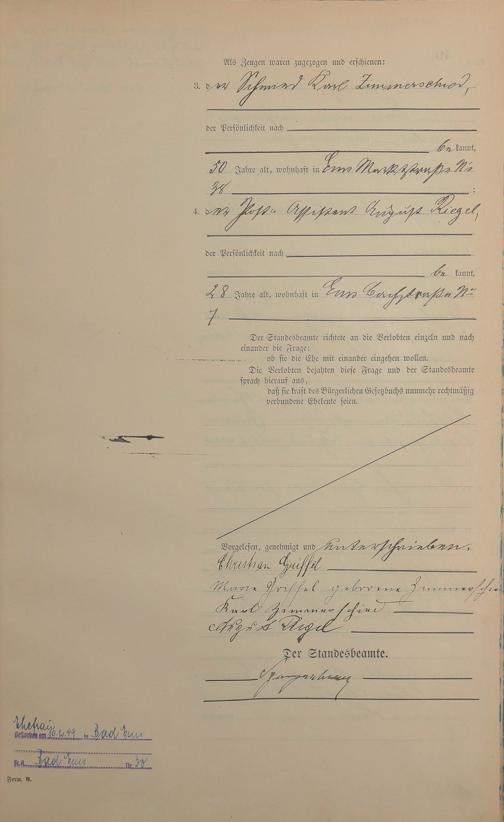 Als Zeugen waren zugezogen und erschienen:
3. der Schmied Karl Zimmerschied,
der Persönlichkeit nach
be kannt,
50 Jahre alt, wohnhaft in Ems Marktstraße No
38 ;
4. der Post-Assistent August Riegel,
der Persönlichkeit nach
be kannt,
28 Jahre alt, wohnhaft in Ems Bachstraße No
7
Der Standesbeamte richtete an die Verlobten einzeln und nach
einander die Frage:
ob sie die Ehe mit einander eingehen wollen.
Die Verlobten bejahten diese Frage und der Standesbeamte
sprach hierauf aus,
daß sie kraft des Bürgerlichen Gesetzbuchs nunmehr rechtmäßig
verbundene Eheleute seien.
Vorgelesen, genehmigt und unterschrieben.
Christian
Marie geborene Zimmerschied
Karl Zimmerschied
August Riegel
Der Standesbeamte.
in Bad Ems
Bad Ems Nr. 30
Form. B.